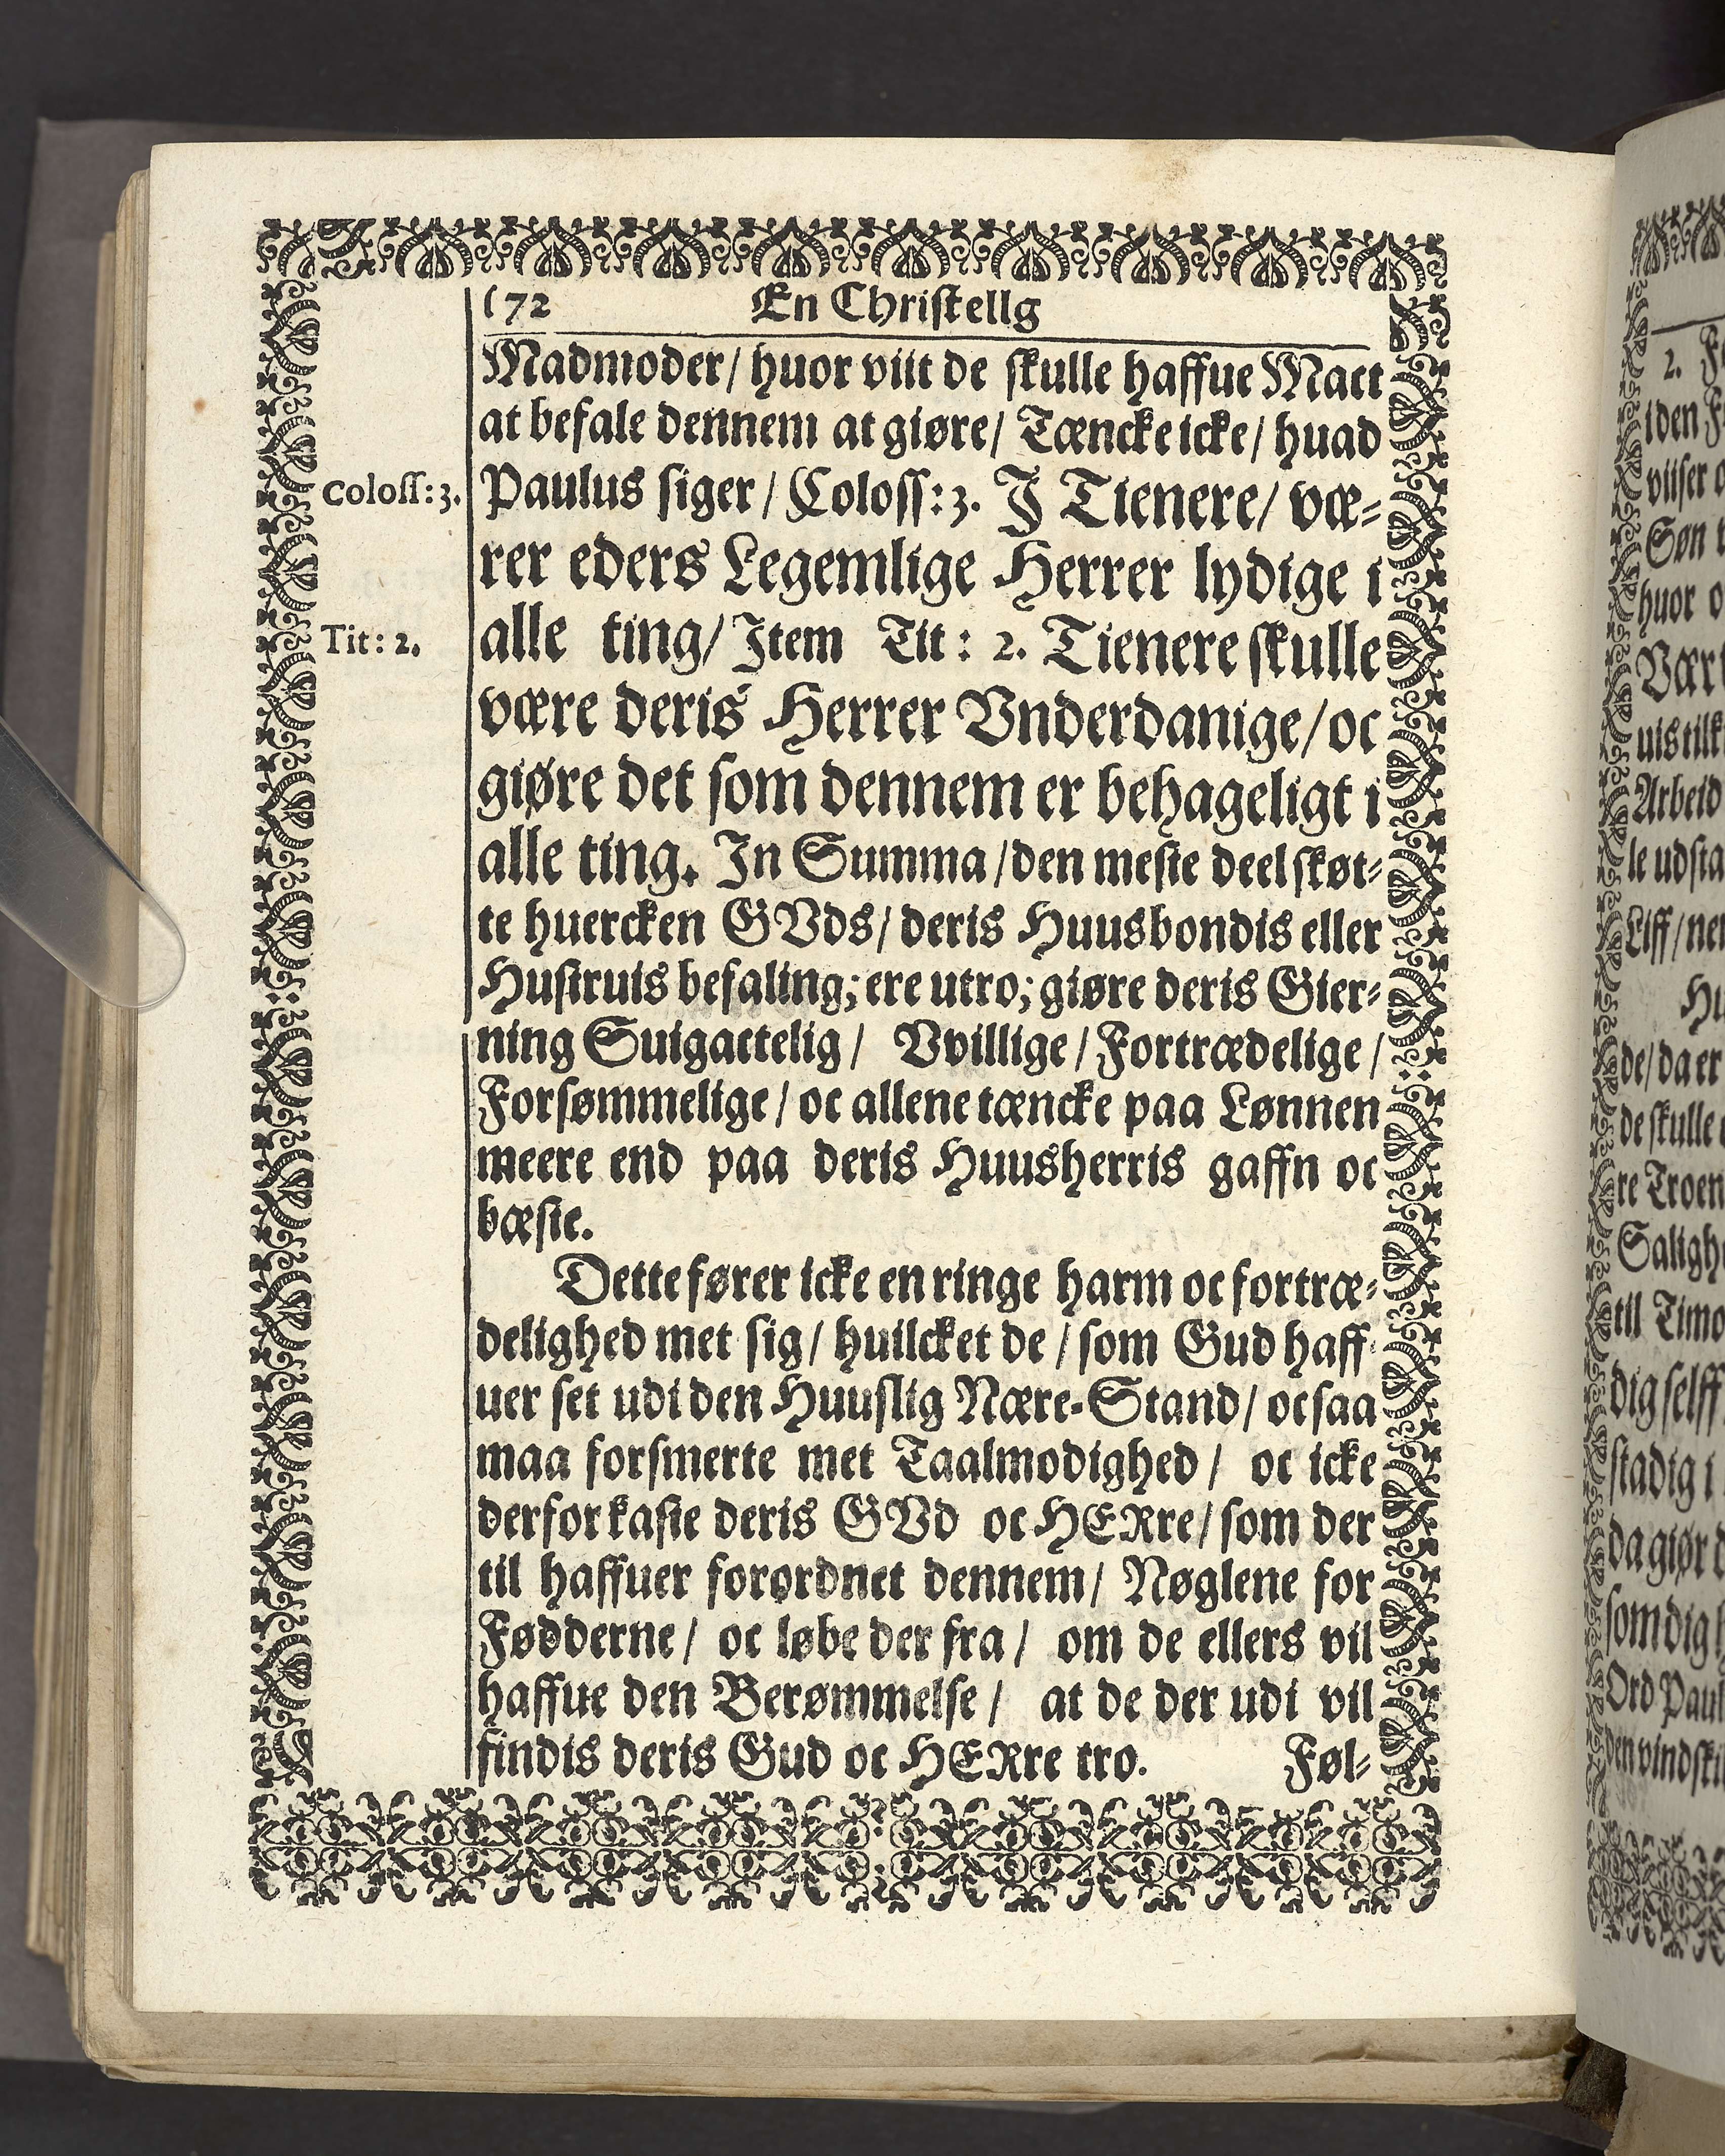 172 En Christellg
Madmoder/ huor viit de skulle haffue Mact
at befale dennem at giøre/ Tæncke icke/ huad
Coloss:3.
Paulus siger/ Coloss:3. J Tienere/ væ-
rer eders Legemlige Herrer lydige i
Tit: 2.
alle ting/ Jtem Tit: 2. Tienere skulle
være deris Herrer Vnderdanige/ oc
giøre det som dennem er behageligt i
alle ting. Jn Summa/ den meste deel skøt-
te huercken GVds/ deris Huusbondis eller
Hustruis befaling; ere utro; giøre deris Gier-
ning Suigactelig/ Vvillige/ Fortrædelige/
Forsømmelige/ oc allene tæncke paa Lønnen
meere end paa deris Huusherris gaffn oc
bæste.
Dette fører icke en ringe harm oc fortræ-
delighed met sig/ huilcket de/ som Gud haff-
uer set udi den Huuslig Nære-Stand/ oc saa
maa forsmerte met Taalmodighed/ oc icke
derfor kaste deris GVd oc HERre/ som der
til haffuer forordnet dennem/ Nøglene for
Fødderne/ oc løbe der fra/ om de ellers vil
haffue den Berømmelse/ at de der udi vil
findis deris Gud oc HERre tro. Føl-
2.
iden
viiser
Søn
huor
Arbeid
le udsta
Liff/
de/ da er
de skulle
re Troen
til Timo
dig selff
stadig i
da giør
som dig
Ord Paul